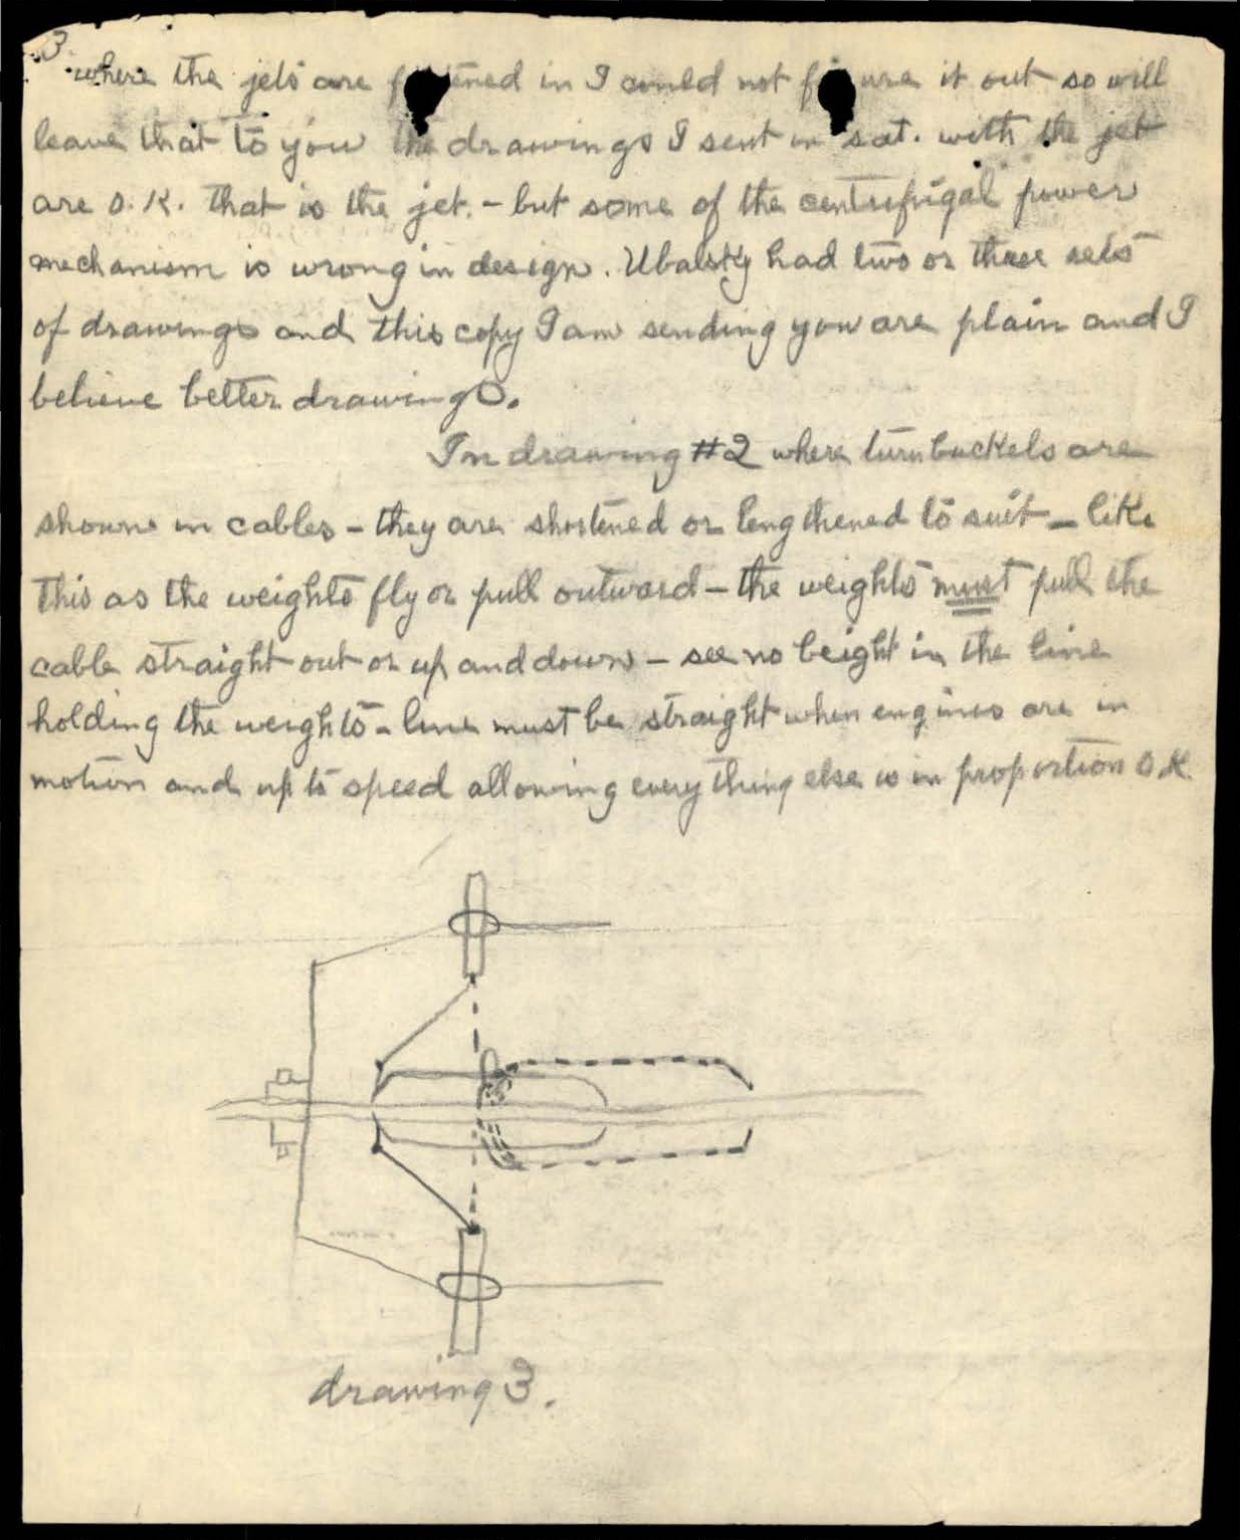 3.
where the jets are fastened in I could not figure it out so will
leave that to you the drawings I sent in sat. with the jet
are O.K. that is the jet. - but some of the centrufrigal power
mechanism is wrong in design. Ubalsky had two or three sets
of drawings and this copy I am sending you are plain and I
believe better drawings.
In drawing #2 where turnbuckels are
shown in cables - they are shortened or lengthened to suit - like
this as the weights fly or pull outward - the weights must pull the
cable straight out or up and down - see no beight in the line
holding the weights - line must be straight when engines are in
motion and up to speed allowing every thing else is in proportion O.K.
drawing 3.